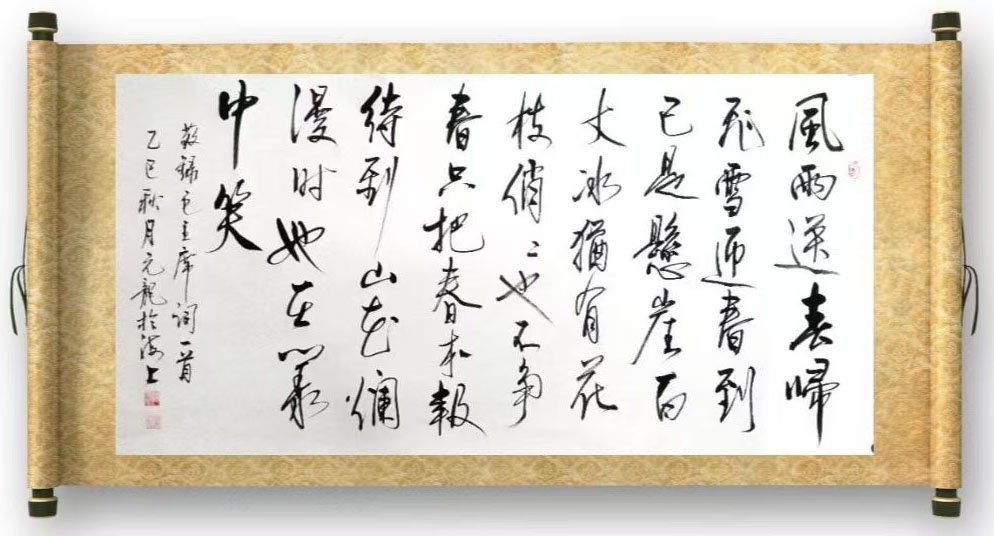 風雨送春歸
飛雪迎春到
已是懸崖百
丈冰猶有花
枝俏〻也不争
春只把春来報
待到山花爛
漫时她在叢
中笑
敬録毛主席词一首
乙巳秋月元龍於海上